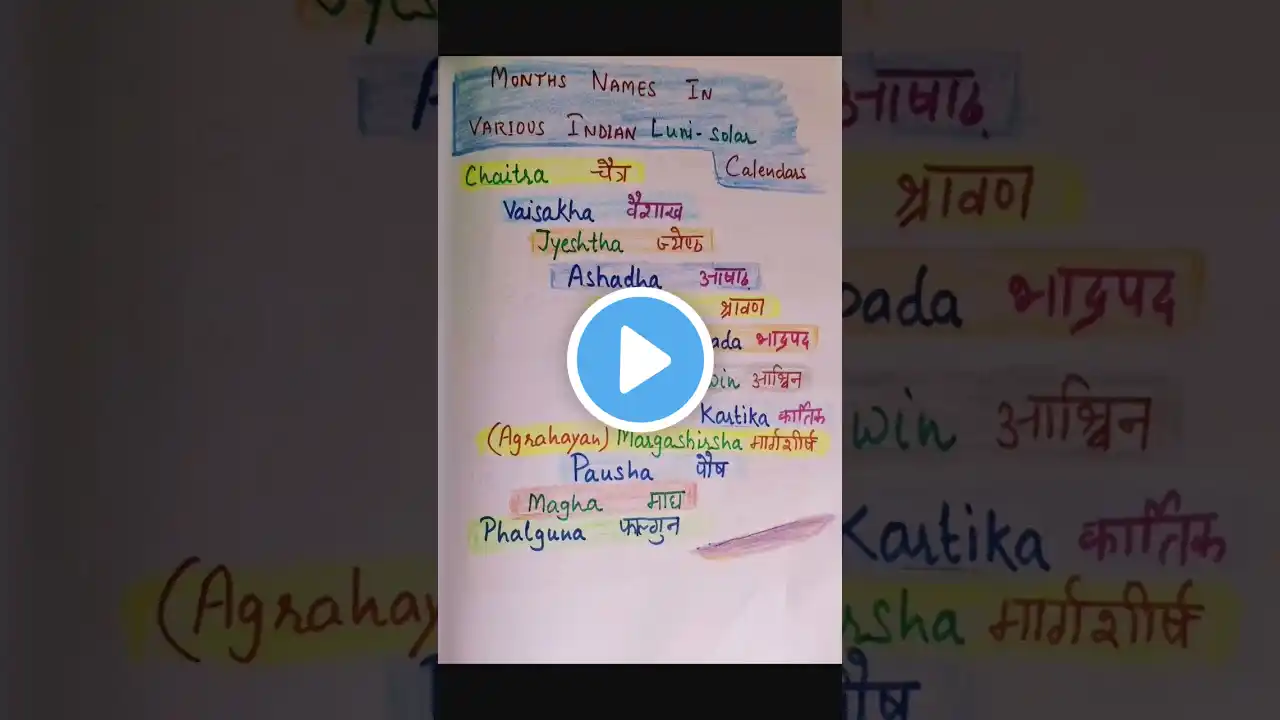 MONTHS NAMES IN
VARIOUS INDIAN Luni-solar
Calendars
Chaitra चैत्र
Vaisakha वैशाख
Jyeshtha ज्येष्ठ
Ashadha आषाढ़
श्रावण
ada भाद्रपद
win आश्विन
Kartika कार्तिक
(Agrahayan) Margashirsha मार्गशीर्ष
Pausha पौष
Magha माघ
Phalguna फाल्गुन